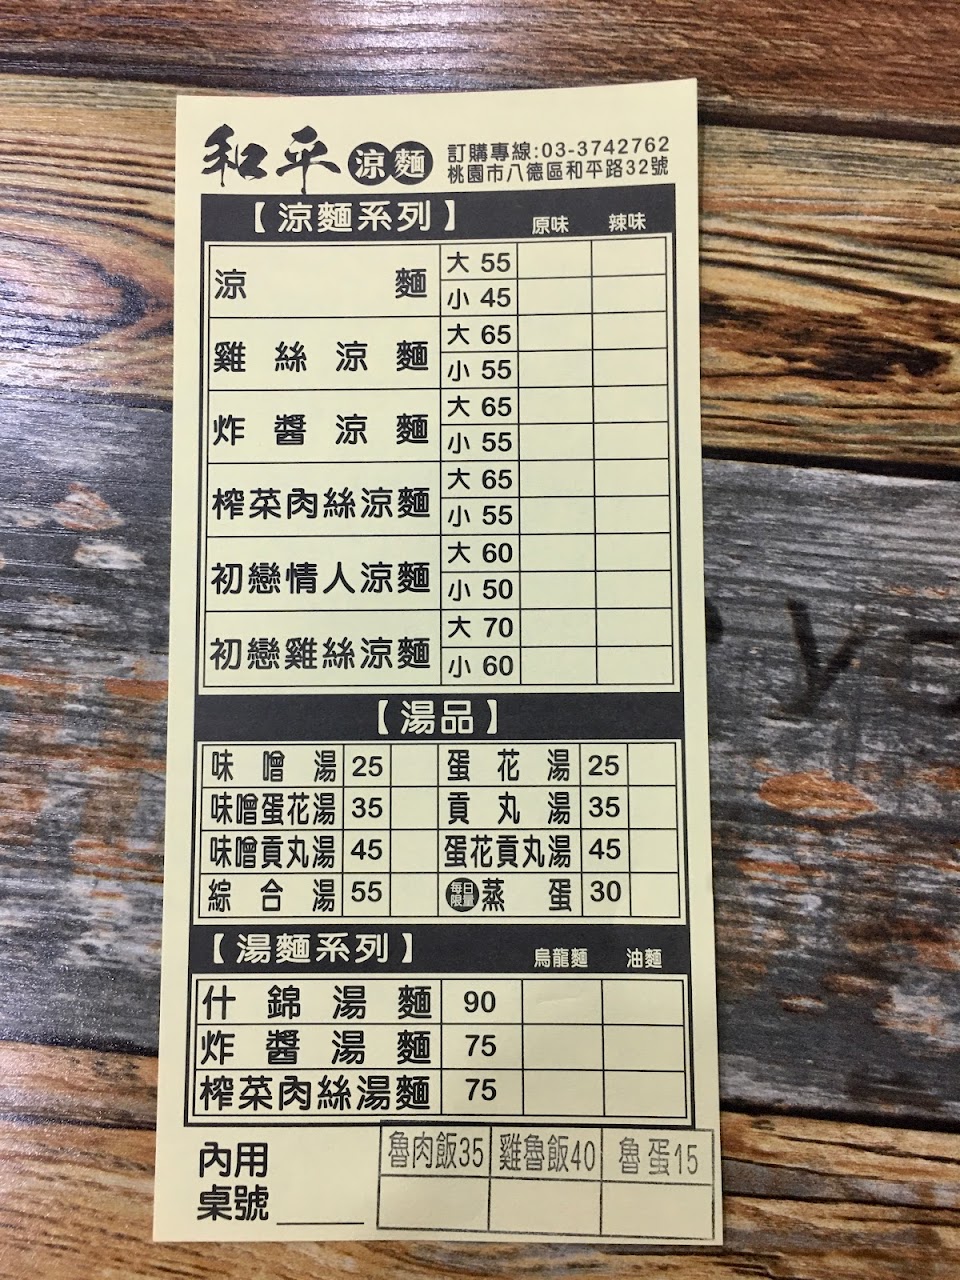 和平涼麵
訂購專線:03-3742762
桃園市八德區和平路32號
【涼麵系列】 原味 辣味
涼麵 大 55
小 45
雞絲涼麵 大 65
小 55
炸醬涼麵 大 65
小 55
榨菜肉絲涼麵 大 65
小 55
初戀情人涼麵 大 60
小 50
初戀雞絲涼麵 大 70
小 60
【湯品】
味噌湯 25 蛋花湯 25
味噌蛋花湯 35 貢丸湯 35
味噌貢丸湯 45 蛋花貢丸湯 45
綜合湯 55 每日限量 蒸蛋 30
【湯麵系列】 烏龍麵 油麵
什錦湯麵 90
炸醬湯麵 75
榨菜肉絲湯麵 75
內用
桌號
魯肉飯35 雞魯飯40 魯蛋15